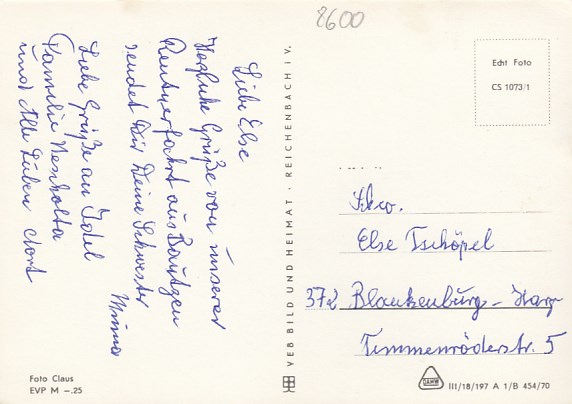 2600
Liebe Else
Herzliche Grüße von unserer
Rentnerfahrt aus Bautzen
sendet Dir Deine Schwester
Minna
Liebe Grüße an Idel
Familie
und Alle Lieben dort
Foto Claus
EVP M –.25
VEB BILD UND HEIMAT · REICHENBACH i. V.
Echt Foto
CS 1073/1
Else Tschöpel
372 Blankenburg - Harz
Timmenröderstr. 5
III/18/197 A 1/B 454/70